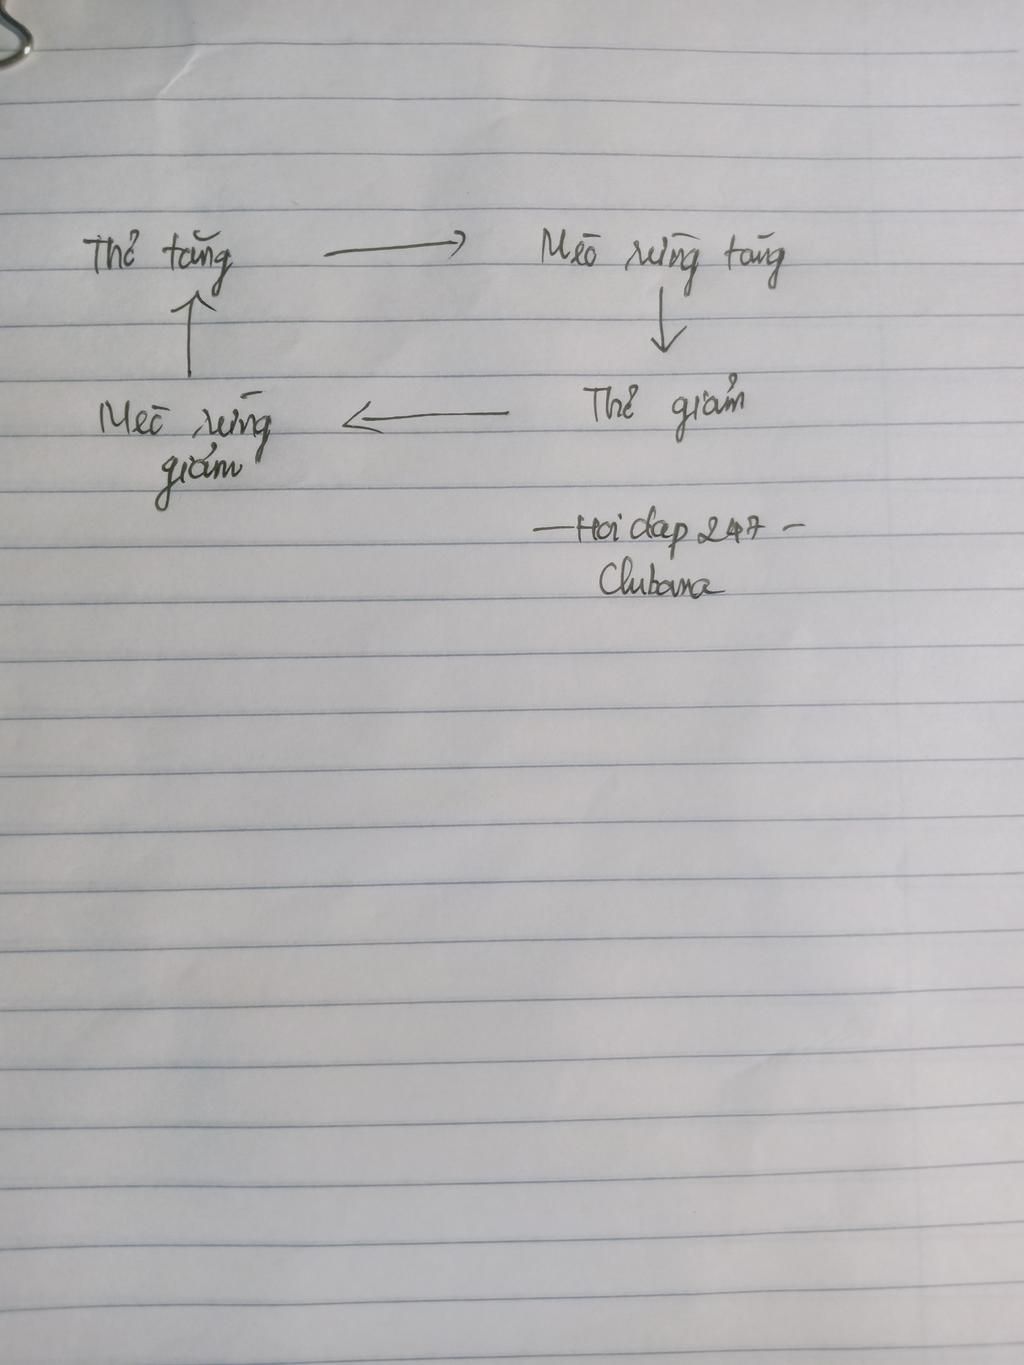 Thỏ tăng → Mèo rừng tăng
Thỏ giảm
Mèo rừng ←
giảm
— Hoi dap 247 —
Clubana